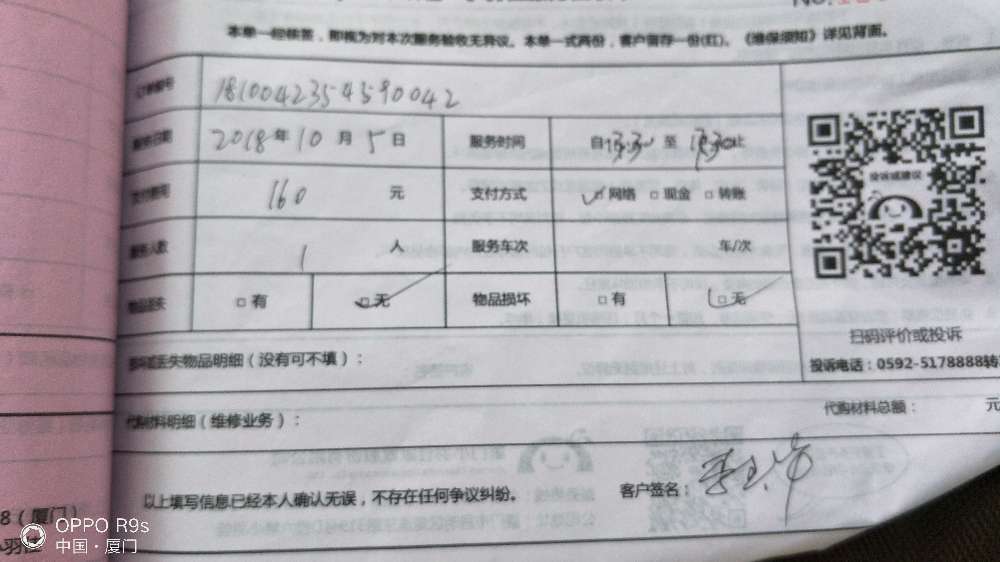 NO.
本单一经核签，即视为对本次服务验收无异议。本单一式两份，客户留存一份(红)。《维保须知》详见背面。
订单编号 1810042354590042
服务日期 2018年10月5日 服务时间 自 至 止
支付费用 160 元 支付方式 网络 现金 转账
服务人数 1 人 服务车次 车/次
物品丢失 有 无 物品损坏 有 无
投诉或建议
扫码评价或投诉
投诉电话：0592-5178888转
损坏或丢失物品明细（没有可不填）：
代购材料明细（维修业务）： 代购材料总额： 元
以上填写信息已经本人确认无误，不存在任何争议纠纷。 客户签名：
8（厦门）
OPPO R9s
中国·厦门